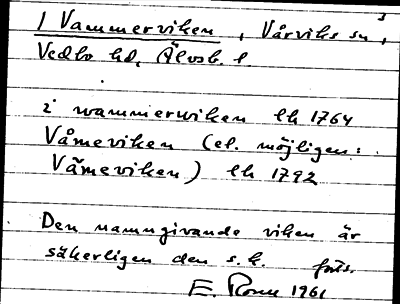 1 Vammerviken, Vårviks sn,
Vedbo hd, Älvsb. l.
i wammerwiken lh 1764
Våmeviken (el. möjligen:
Vämeviken) lh 1792
Den namngivande viken är
säkerligen den s.k. forts.
E. Rosell 1961